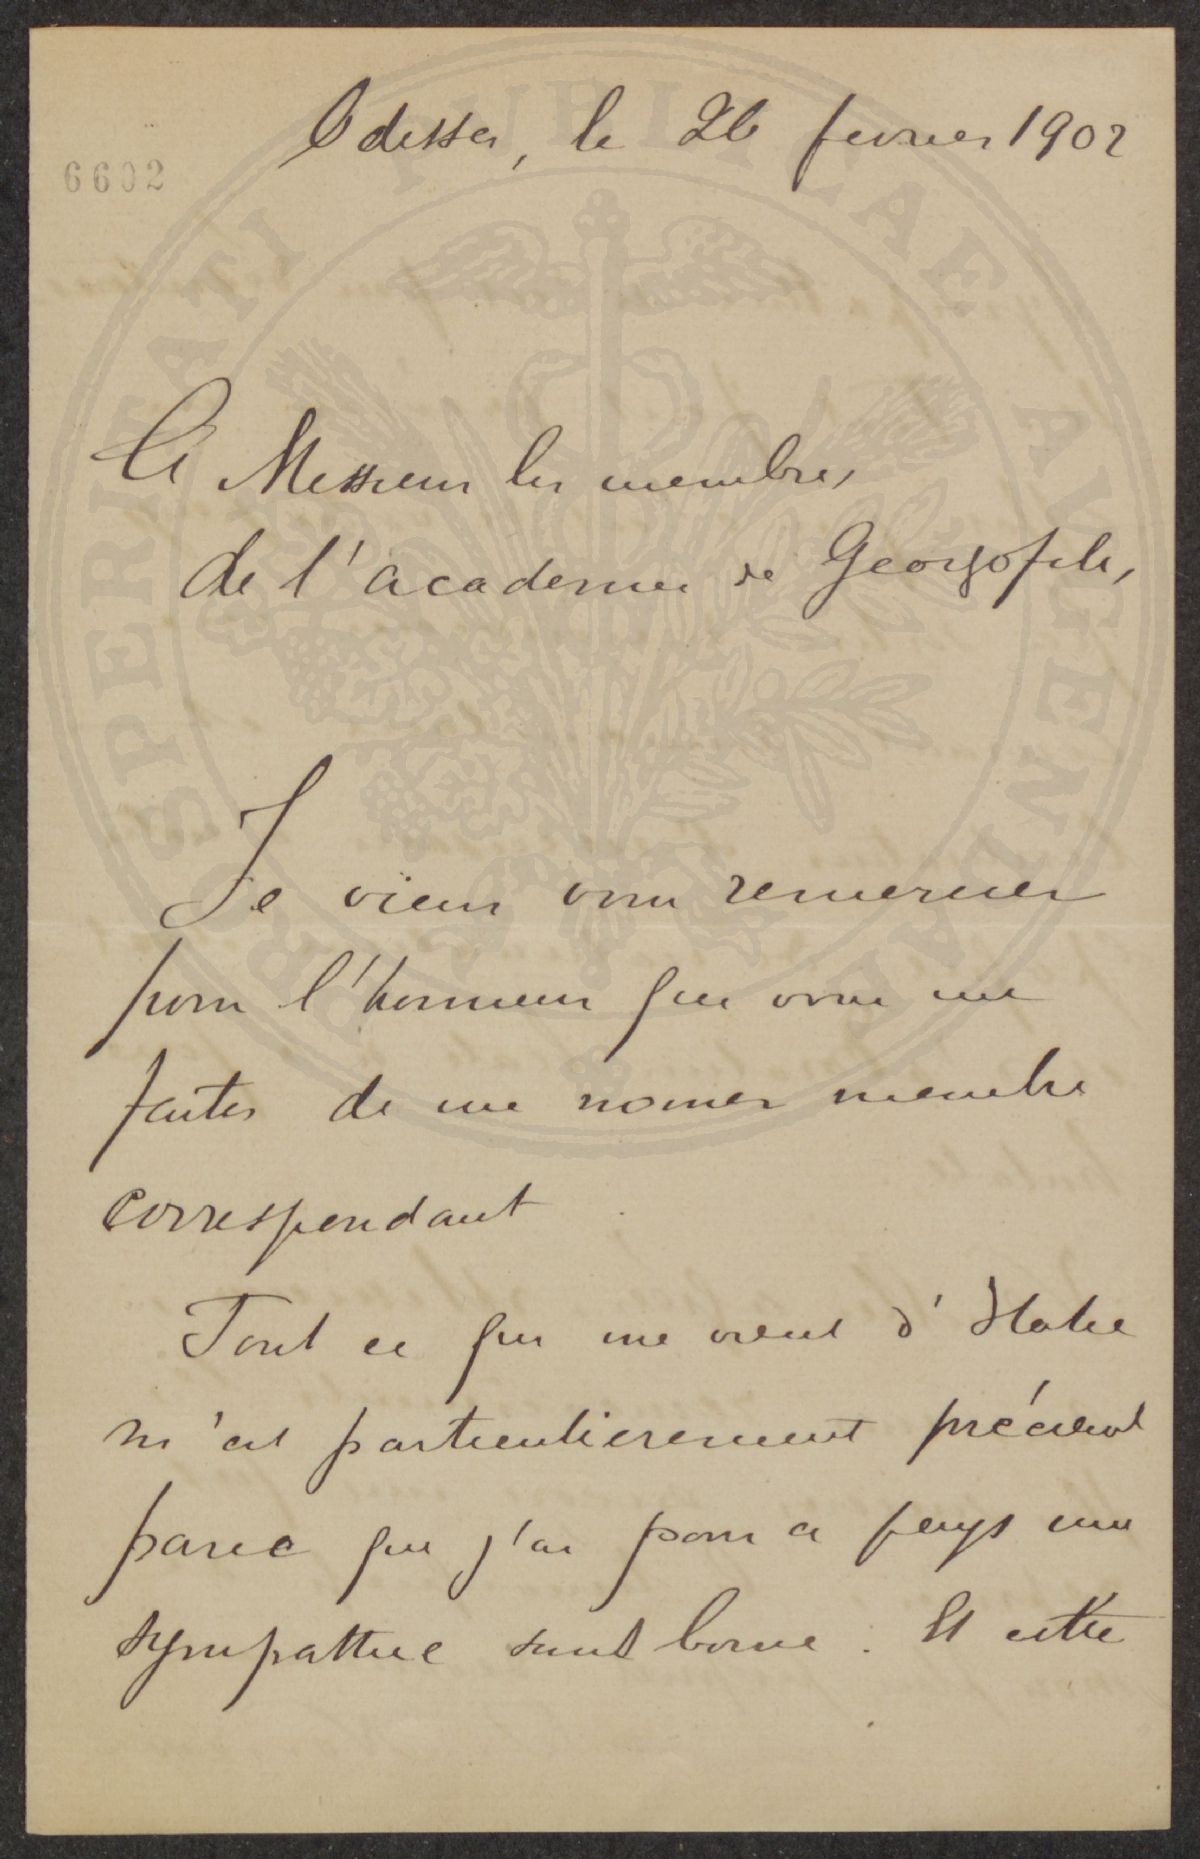 Odessa, le 26 fevrier 1902
6602
A Messieurs les membres
de l'academie de Georgofili,
Je viens vous remercier
pour l'honneur que vous me
faites de me nomer membre
correspondant
Tout ce qui me vient d'Italie
m'est particulierement précieux
parce que j'ai pour ce pays une
sympathie sans borne. Et cette
PROSPERITATI PUBLICAE AUGENDAE